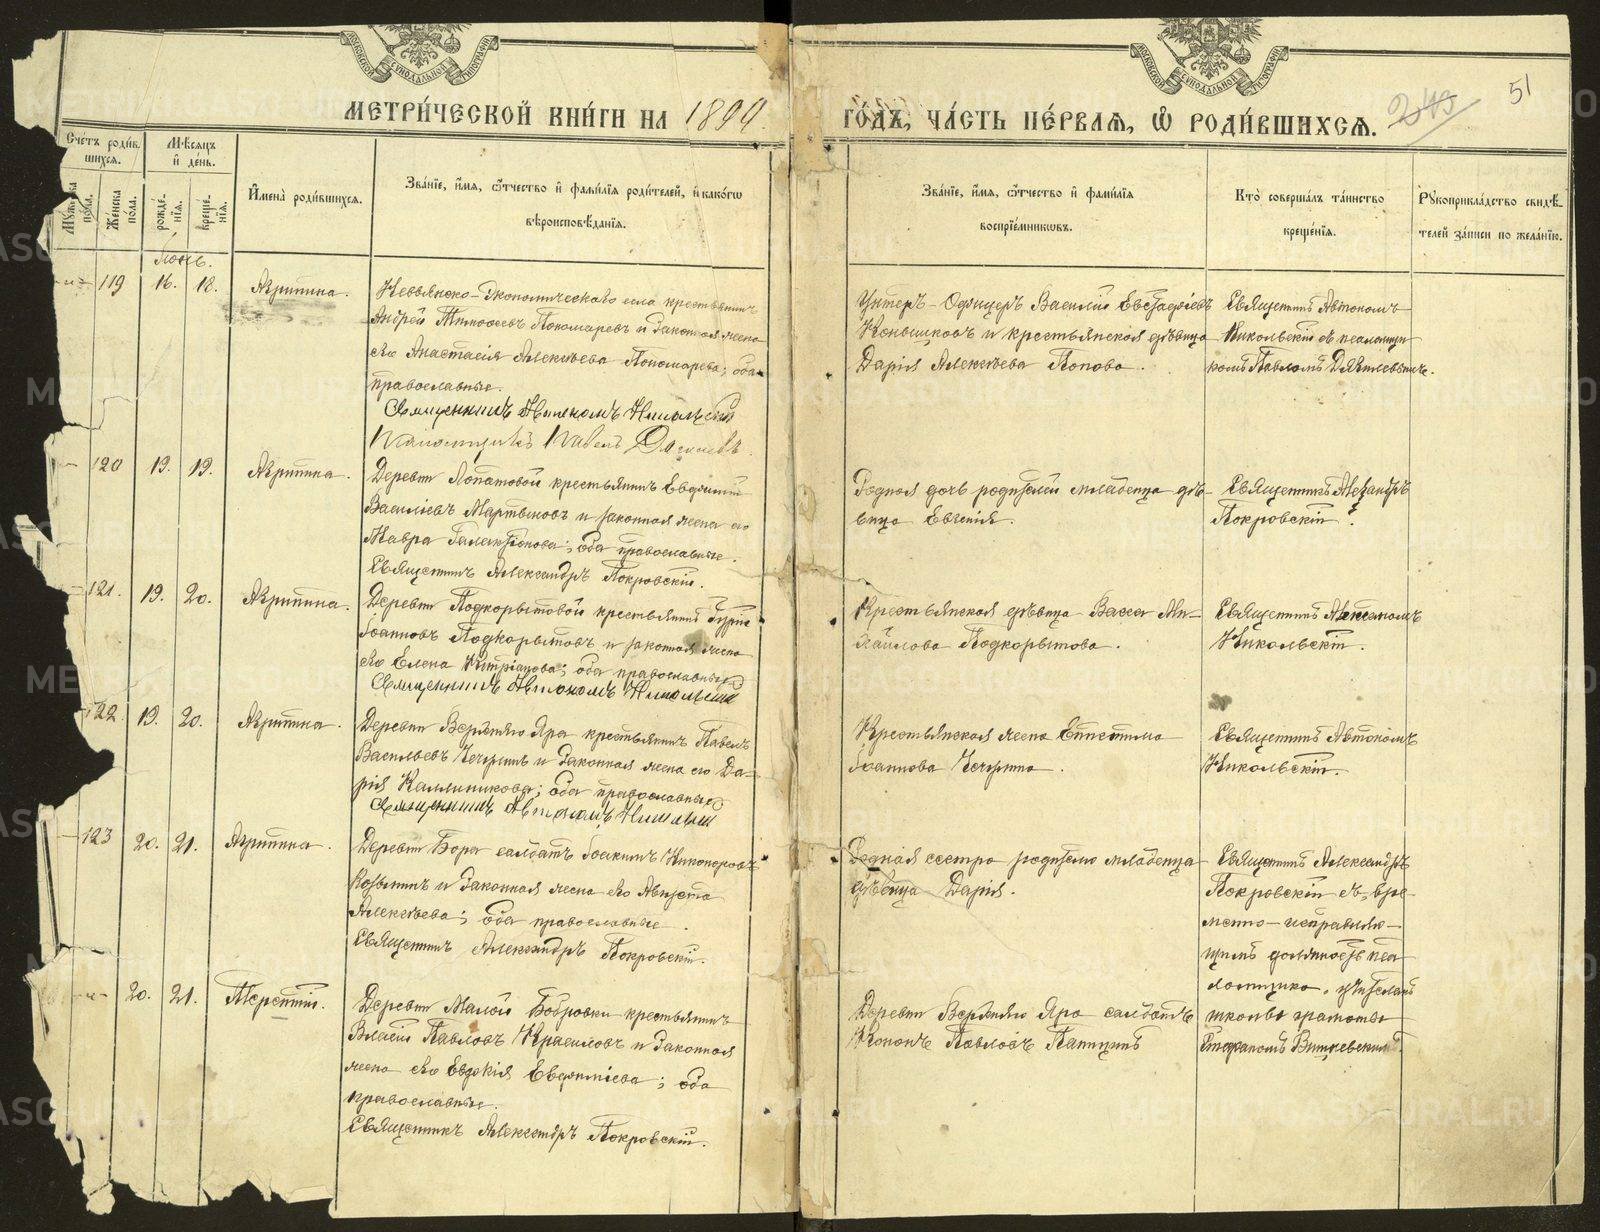 МОСКОВСКОЙ СѴНОДАЛЬНОЙ ТИПОГРАФІИ
МОСКОВСКОЙ СѴНОДАЛЬНОЙ ТИПОГРАФІИ
МЕТРИ́ЧЕСКОЙ КНИ́ГИ НА 1899
ГО́ДЪ, ЧА́СТЬ ПЕ́РВАЯ, Ѡ РОДИ́ВШИХСЯ.
51
Счетъ родив-
шихся.
Мѣсяцъ
и день.
Мужска
пола.
Женска
пола.
рожде-
нія.
креще-
нія.
Имена родившихся.
Званіе, имя, отчество и фамилія родителей, и какогѡ
вѣроисповѣданія.
Званіе, имя, отчество и фамилія
воспріемниковъ.
Кто совершалъ таинство
крещенія.
Рукоприкладство свидѣ-
телей записи по желанію.
Іюнь.
119 16. 18. Агрипина.
Невьянско-Экономическаго села крестьянинъ
Андрей Тимоѳеевъ Пономаревъ и законная жена
его Анастасія Алексѣева Пономарева; оба
православные.
Священникъ Автономъ Никольскій
Псаломщикъ Павелъ
Унтеръ-Офицеръ Василій Евстафіевъ
Коньшиковъ и крестьянская дѣвица
Дарія Алексѣева Попова.
Священникъ Автономъ
Никольскій съ псаломщи-
комъ Павломъ
120 19. 19. Агрипина.
Деревни Лопатовой крестьянинъ Евфимій
Василіевъ Мартьяновъ и законная жена его
Мавра Галактіонова; оба православные.
Священникъ Александръ Покровскій.
Родная дочь родителей младенца дѣ-
вица Евгенія.
Священникъ Александръ
Покровскій.
121. 19. 20. Агрипина.
Деревни Подкорытовой крестьянинъ Гурій
Іоанновъ Подкорытовъ и законная жена
его Елена Кипріанова; оба православные
Священникъ Автономъ Никольскій
Крестьянская дѣвица Васса Ми-
хайлова Подкорытова.
Священникъ Автономъ
Никольскій.
122. 19. 20. Агрипина.
Деревни Верхняго Яра крестьянинъ Павелъ
Васильевъ Чечулинъ и законная жена его Да-
рія Каллиникова; оба православные
Священникъ Автономъ Никольскій
Крестьянская жена Епистима
Іоаннова Чечулина.
Священникъ Автономъ
Никольскій.
123 20. 21. Агрипина.
Деревни Бора солдатъ Іоакимъ Никоноровъ
Козьминъ и законная жена его Августа
Алексѣева; оба православные.
Священникъ Александръ Покровскій.
Родная сестра родителю младенца
дѣвица Дарія.
Священникъ Александръ
Покровскій съ вре-
менно-исправляю-
щимъ должность пса-
ломщика, учителемъ
школы грамоты
Стефаномъ
20. 21. Терентій.
Деревни Малой Бобровки крестьянинъ
Власій Павловъ Красиловъ и законная
жена его Евдокія Евфиміева; оба
православные.
Священникъ Александръ Покровскій.
Деревни Верхняго Яра солдатъ
Кононъ Павловъ